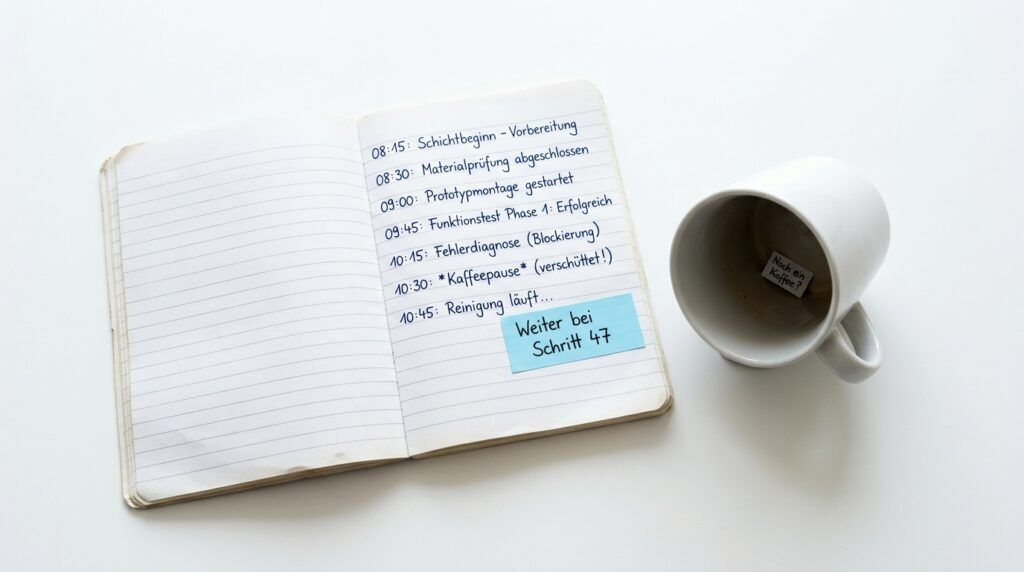 08:15: Schichtbeginn - Vorbereitung
08:30: Materialprüfung abgeschlossen
09:00: Prototypmontage gestartet
09:45: Funktionstest Phase 1: Erfolgreich
10:15: Fehlerdiagnose (Blockierung)
10:30: *Kaffeepause* (verschüttet!)
10:45: Reinigung läuft...
Weiter bei
Schritt 47
Noch ein
Kaffee?